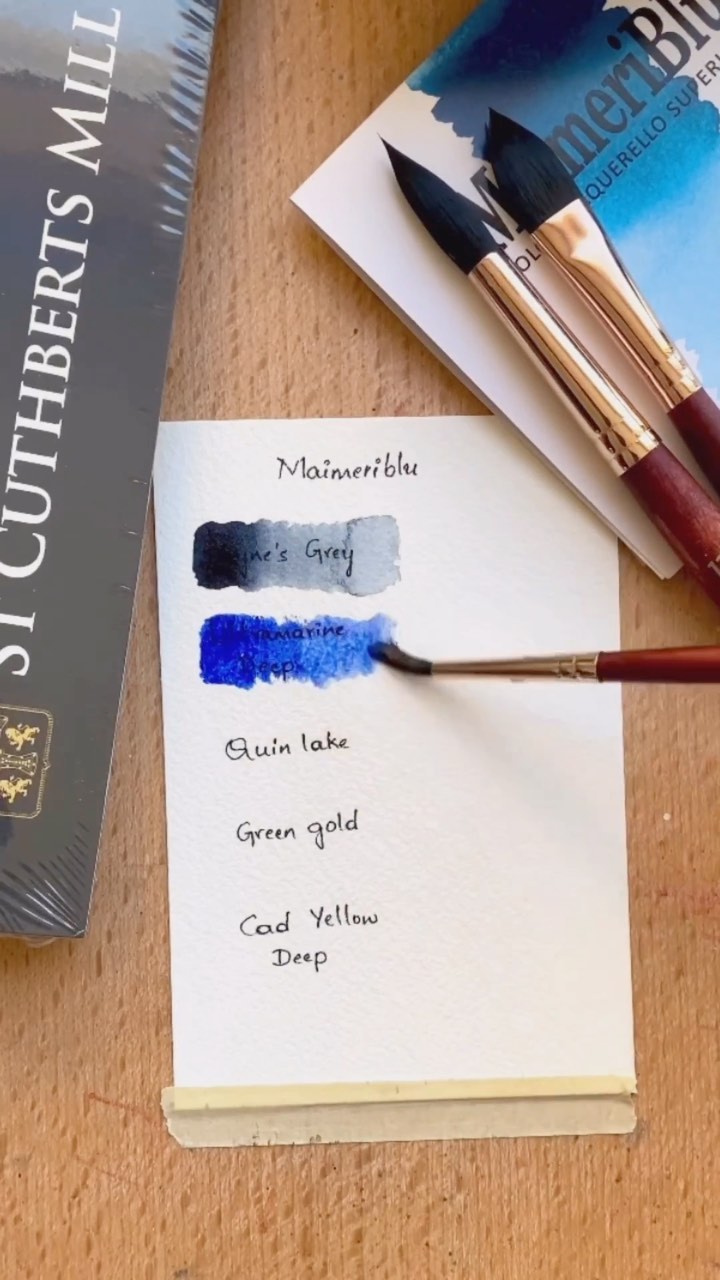 ST CUTHBERTS MILL
MaimeriBlu
ACQUERELLO SUPERI
Maimeriblu
yne's Grey
ramarine
Deep
Quin lake
Green gold
Cad Yellow
Deep